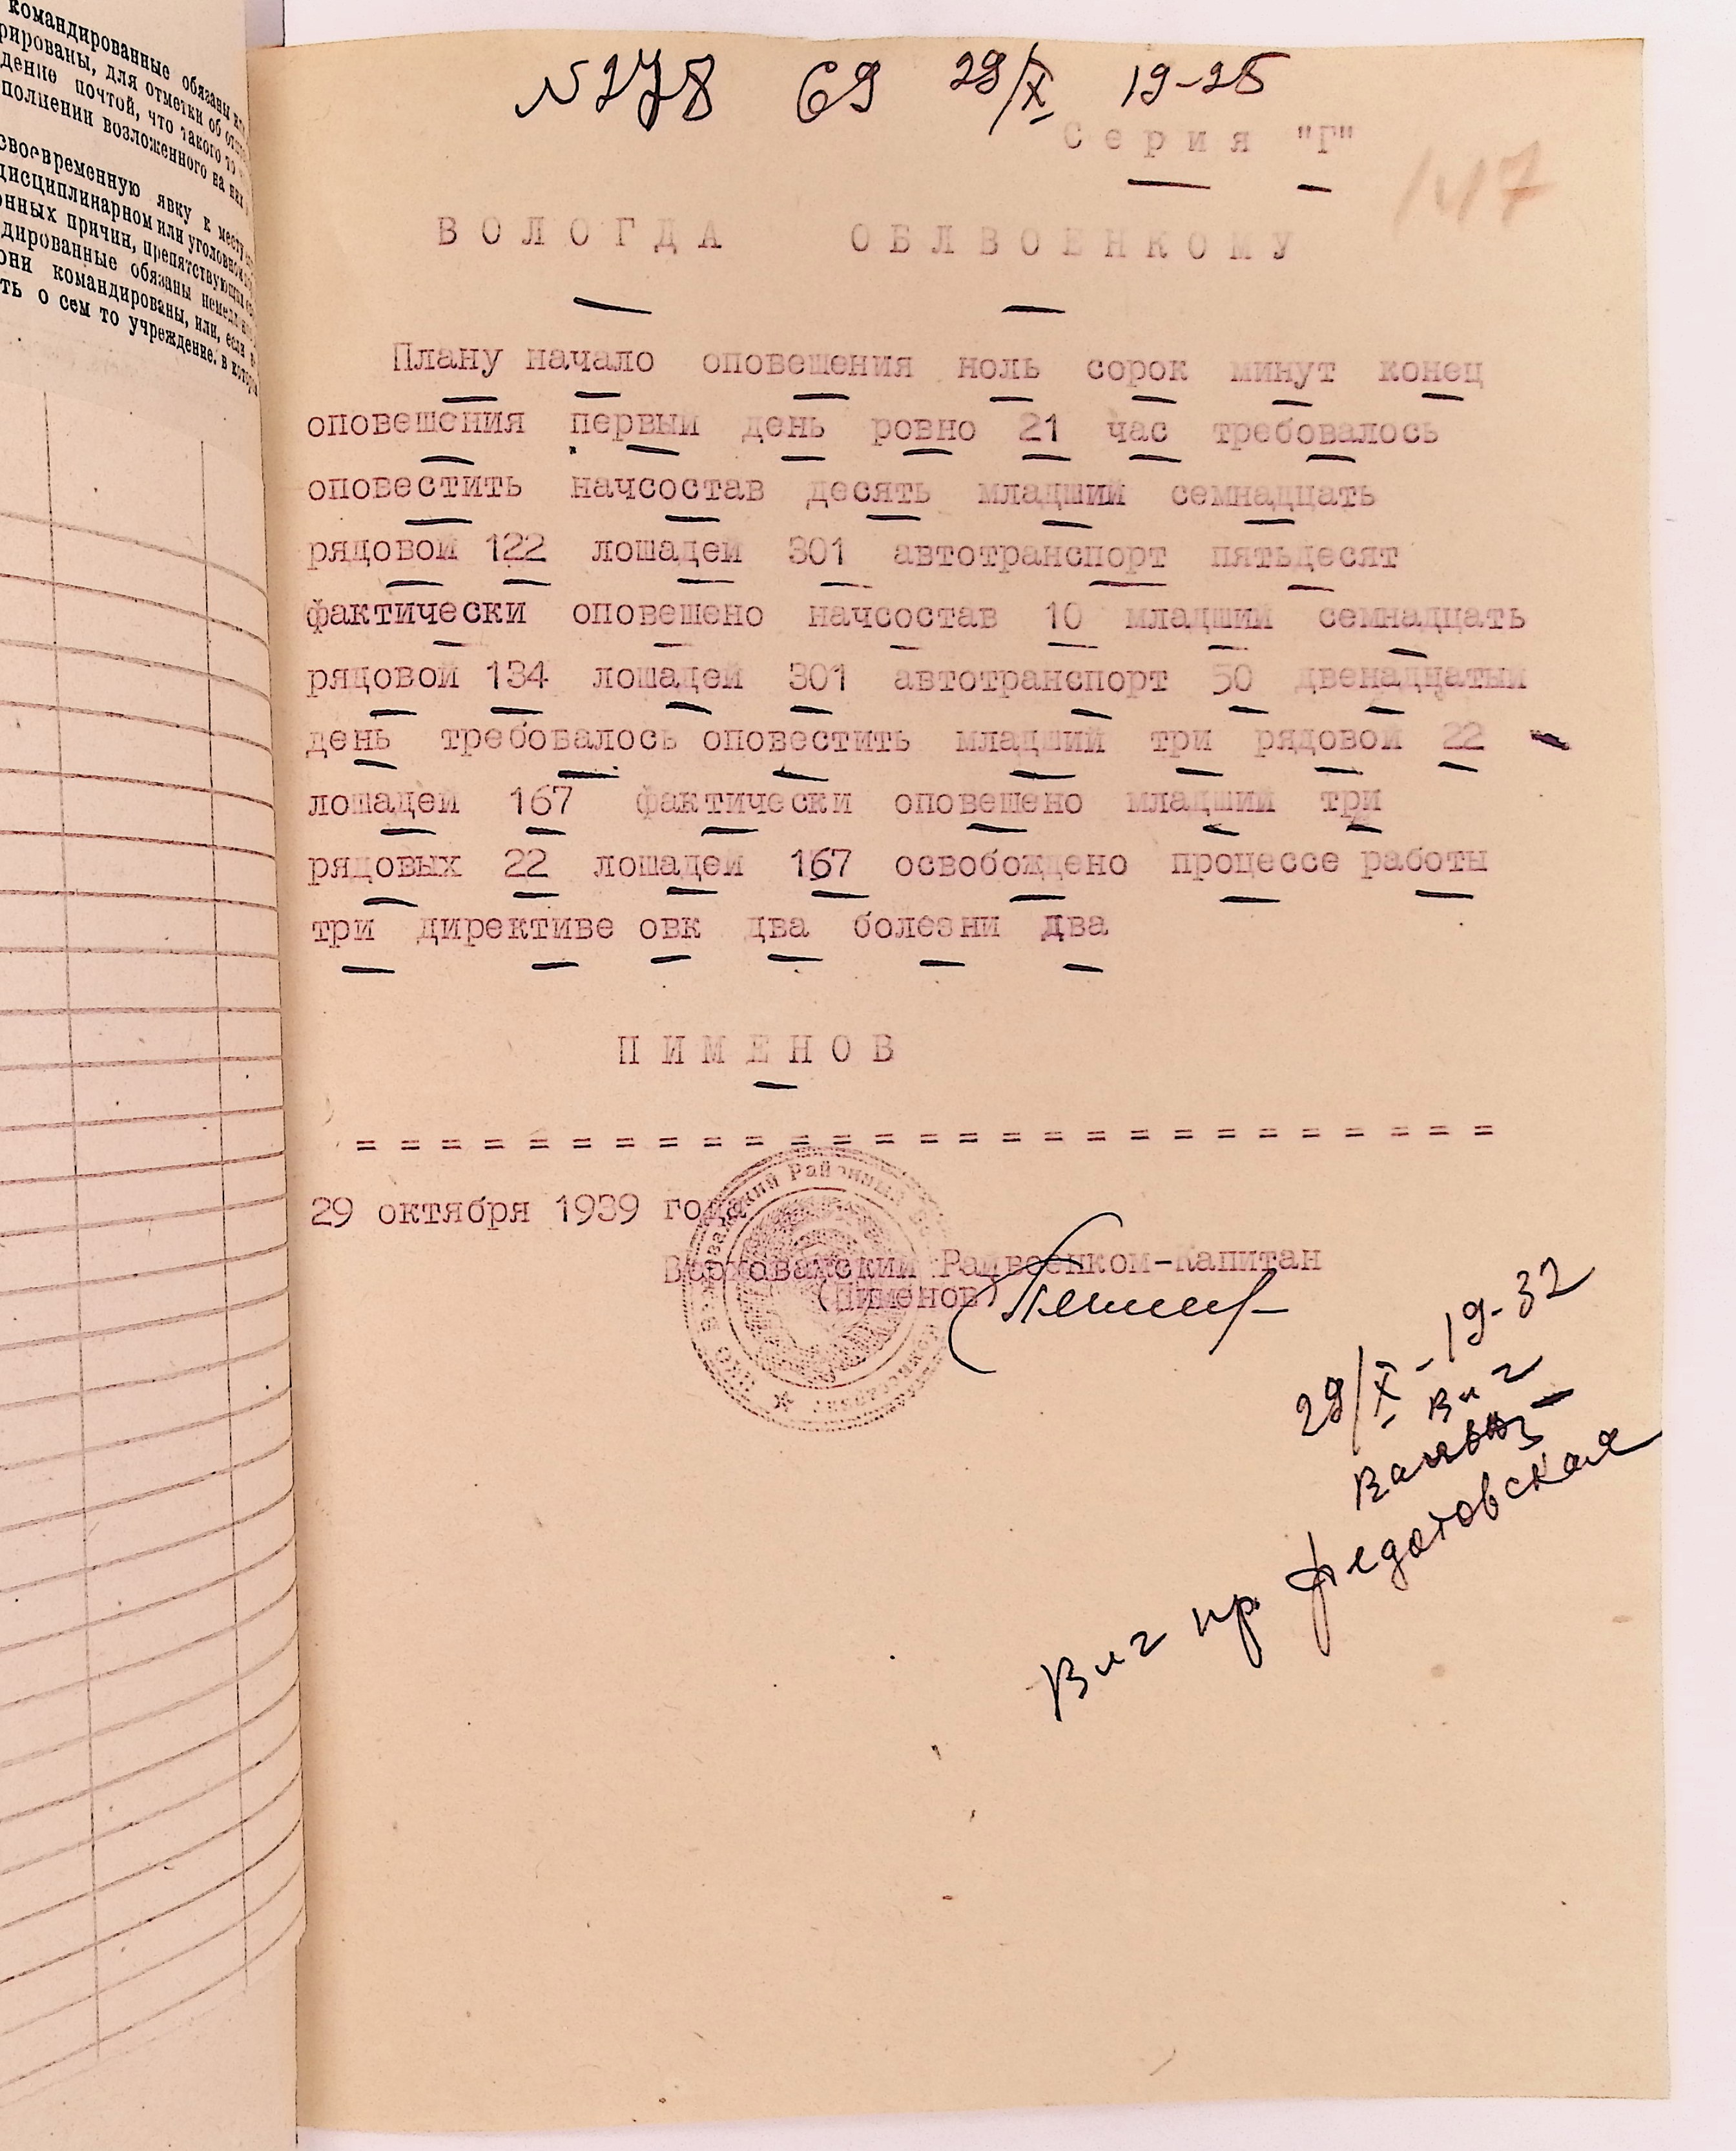 командированные обязаны
рированы, для отметки об
дение почтой, что такого то
полнении возложенного на них
своевременную явку к месту
дисциплинарном или уголовном
онных причин, препятствующих
дированные обязаны
они командированы, или, если
ть о сем то учреждение, в которо
№ 278 69 29/X 19-25
Серия "Г"
147
ВОЛОГДА ОБЛВОЕНКОМУ
Плану начало оповешения ноль сорок минут конец
оповешения первый день ровно 21 час требовалось
оповестить начсостав десять младший семнадцать
рядовой 122 лошадей 301 автотранспорт пятьдесят
фактически оповешено начсостав 10 младший семнадцать
рядовой 134 лошадей 301 автотранспорт 50 двенадцатый
день требовалось оповестить младший три рядовой 22
лошадей 167 фактически оповешено младший три
рядовых 22 лошадей 167 освобождено процессе работы
три директиве овк два болезни два
ПИМЕНОВ
= = = = = = = = = = = = = = = = = = = = = = = = = = =
29 октября 1939 года
Верховажский Райвоенком-Капитан
(Пименов)
НКО Верховажский Районный Комиссариат
29/X-19-32
Влг
Влг пр Федотовская